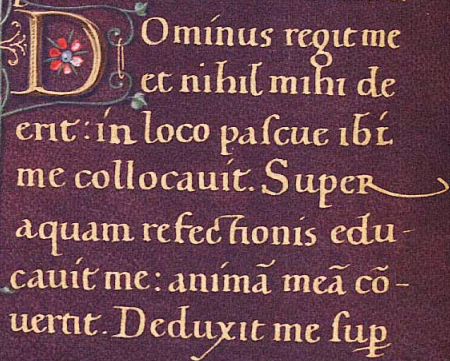 Dominus regit me
et nihil mihi de
erit: in loco paſcue ibi
me collocavit. Super
aquam refectionis edu-
cauit me: animã meã cõ-
uertit. Deduxit me ſuꝑ